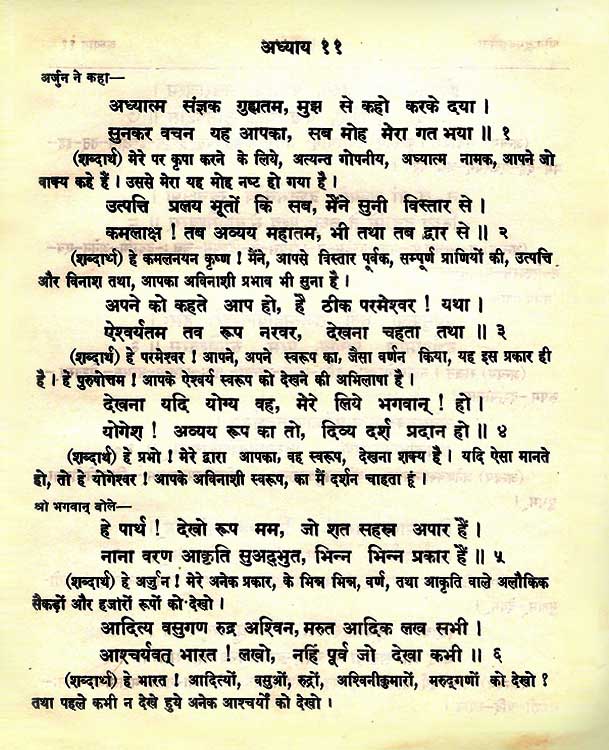 अध्याय ११
अर्जुन ने कहा—
अध्यात्म संज्ञक गुह्यतम, मुझ से कहो करके दया ।
सुनकर वचन यह आपका, सब मोह मेरा गत भया ॥ १
(शब्दार्थ) मेरे पर कृपा करने के लिये, अत्यन्त गोपनीय, अध्यात्म नामक, आपने जो
वाक्य कहे हैं । उससे मेरा यह मोह नष्ट हो गया है ।
उत्पत्ति प्रलय भूतों कि सब, मैंने सुनी विस्तार से ।
कमलाक्ष ! तब अव्यय महातम, भी तथा तब द्वार से ॥ २
(शब्दार्थ) हे कमलनयन कृष्ण ! मैंने, आपसे विस्तार पूर्वक, सम्पूर्ण प्राणियों की, उत्पत्ति
और विनाश तथा, आपका अविनाशी प्रभाव भी सुना है ।
अपने को कहते आप हो, है ठीक परमेश्वर ! यथा ।
ऐश्वर्यतम तव रूप नरवर, देखना चहता तथा ॥ ३
(शब्दार्थ) हे परमेश्वर ! आपने, अपने स्वरूप का, जैसा वर्णन किया, यह इस प्रकार ही
है । हे पुरुपोचम ! आपके ऐश्वर्य स्वरूप को देखने की अभिलाषा है ।
देखना यदि योग्य वह, मेरे लिये भगवान् ! हो ।
योगेश ! अव्यय रूप का तो, दिव्य दर्श प्रदान हो ॥ ४
(शब्दार्थ) हे प्रभो ! मेरे द्वारा आपका, वह स्वरूप, देखना शक्य है । यदि ऐसा मानते
हो, तो हे योगेश्वर ! आपके अविनाशी स्वरूप, का मैं दर्शन चाहता हूं ।
श्री भगवान् बोले—
हे पार्थ ! देखो रूप मम, जो शत सहस्त्र अपार हैं ।
नाना वरण आकृति सुअद्‌भुत, भिन्न भिन्न प्रकार हैं ॥ ५
(शब्दार्थ) हे अर्जुन ! मेरे अनेक प्रकार, के भिन्न भिन्न, वर्ण, तथा आकृति वाले अलौकिक
सैकड़ों और हजारों रूपों को देखो ।
आदित्य वसुगण रुद्र अश्विन, मरुत आदिक लख सभी ।
आश्चर्यवत् भारत ! लखो, नहिं पूर्व जो देखा कभी ॥ ६
(शब्दार्थ) हे भारत ! आदित्यों, वसुओं, रुद्रों, अश्विनीकुमारों, मरुद्‌गणों को देखो ?
तथा पहले कभी न देखे हुये अनेक आश्चर्यों को देखो ।